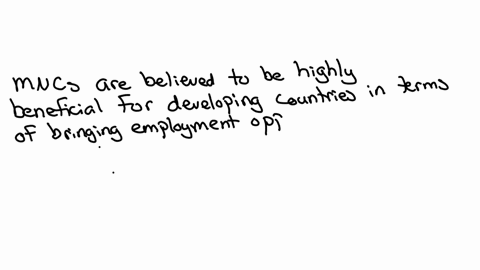 MNCs are believed to be highly
beneficial for developing countries in terms
of bringing employment opp